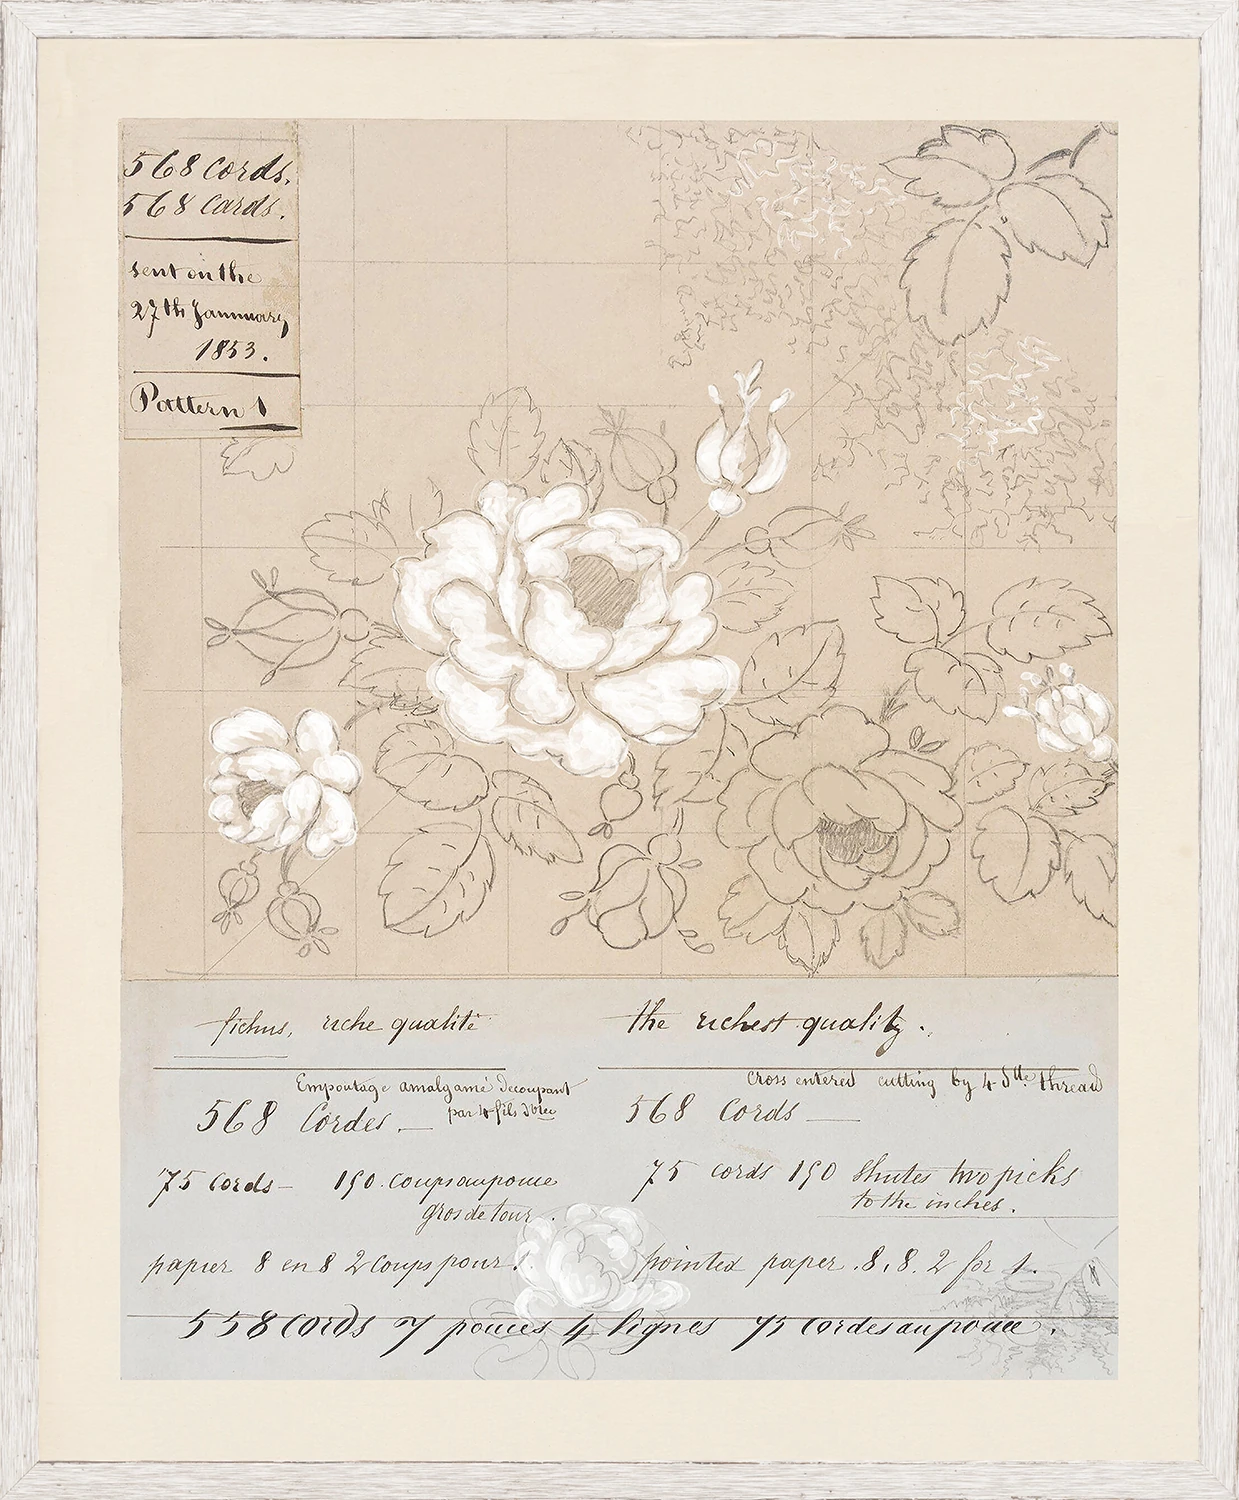 568 Cords.
568 Cards.
sent on the
27th Jannuary
1853.
Pattern 1
fichus, riche qualité
Empoutage amalgamé Decoupant
568 Cordes.—
par 4 fils
75 cords— 190. coups au pouce
gros de tour.
papier 8 en 8 2 coups pour 1.
the richest quality.
cross entered cutting by 4 thread
568 Cords —
75 cords 190 Shutes two picks
to the inches.
pointed paper. 8, 8. 2 for 1.
558 Cords 7 pouces 4 lignes 75 cordes au pouce.